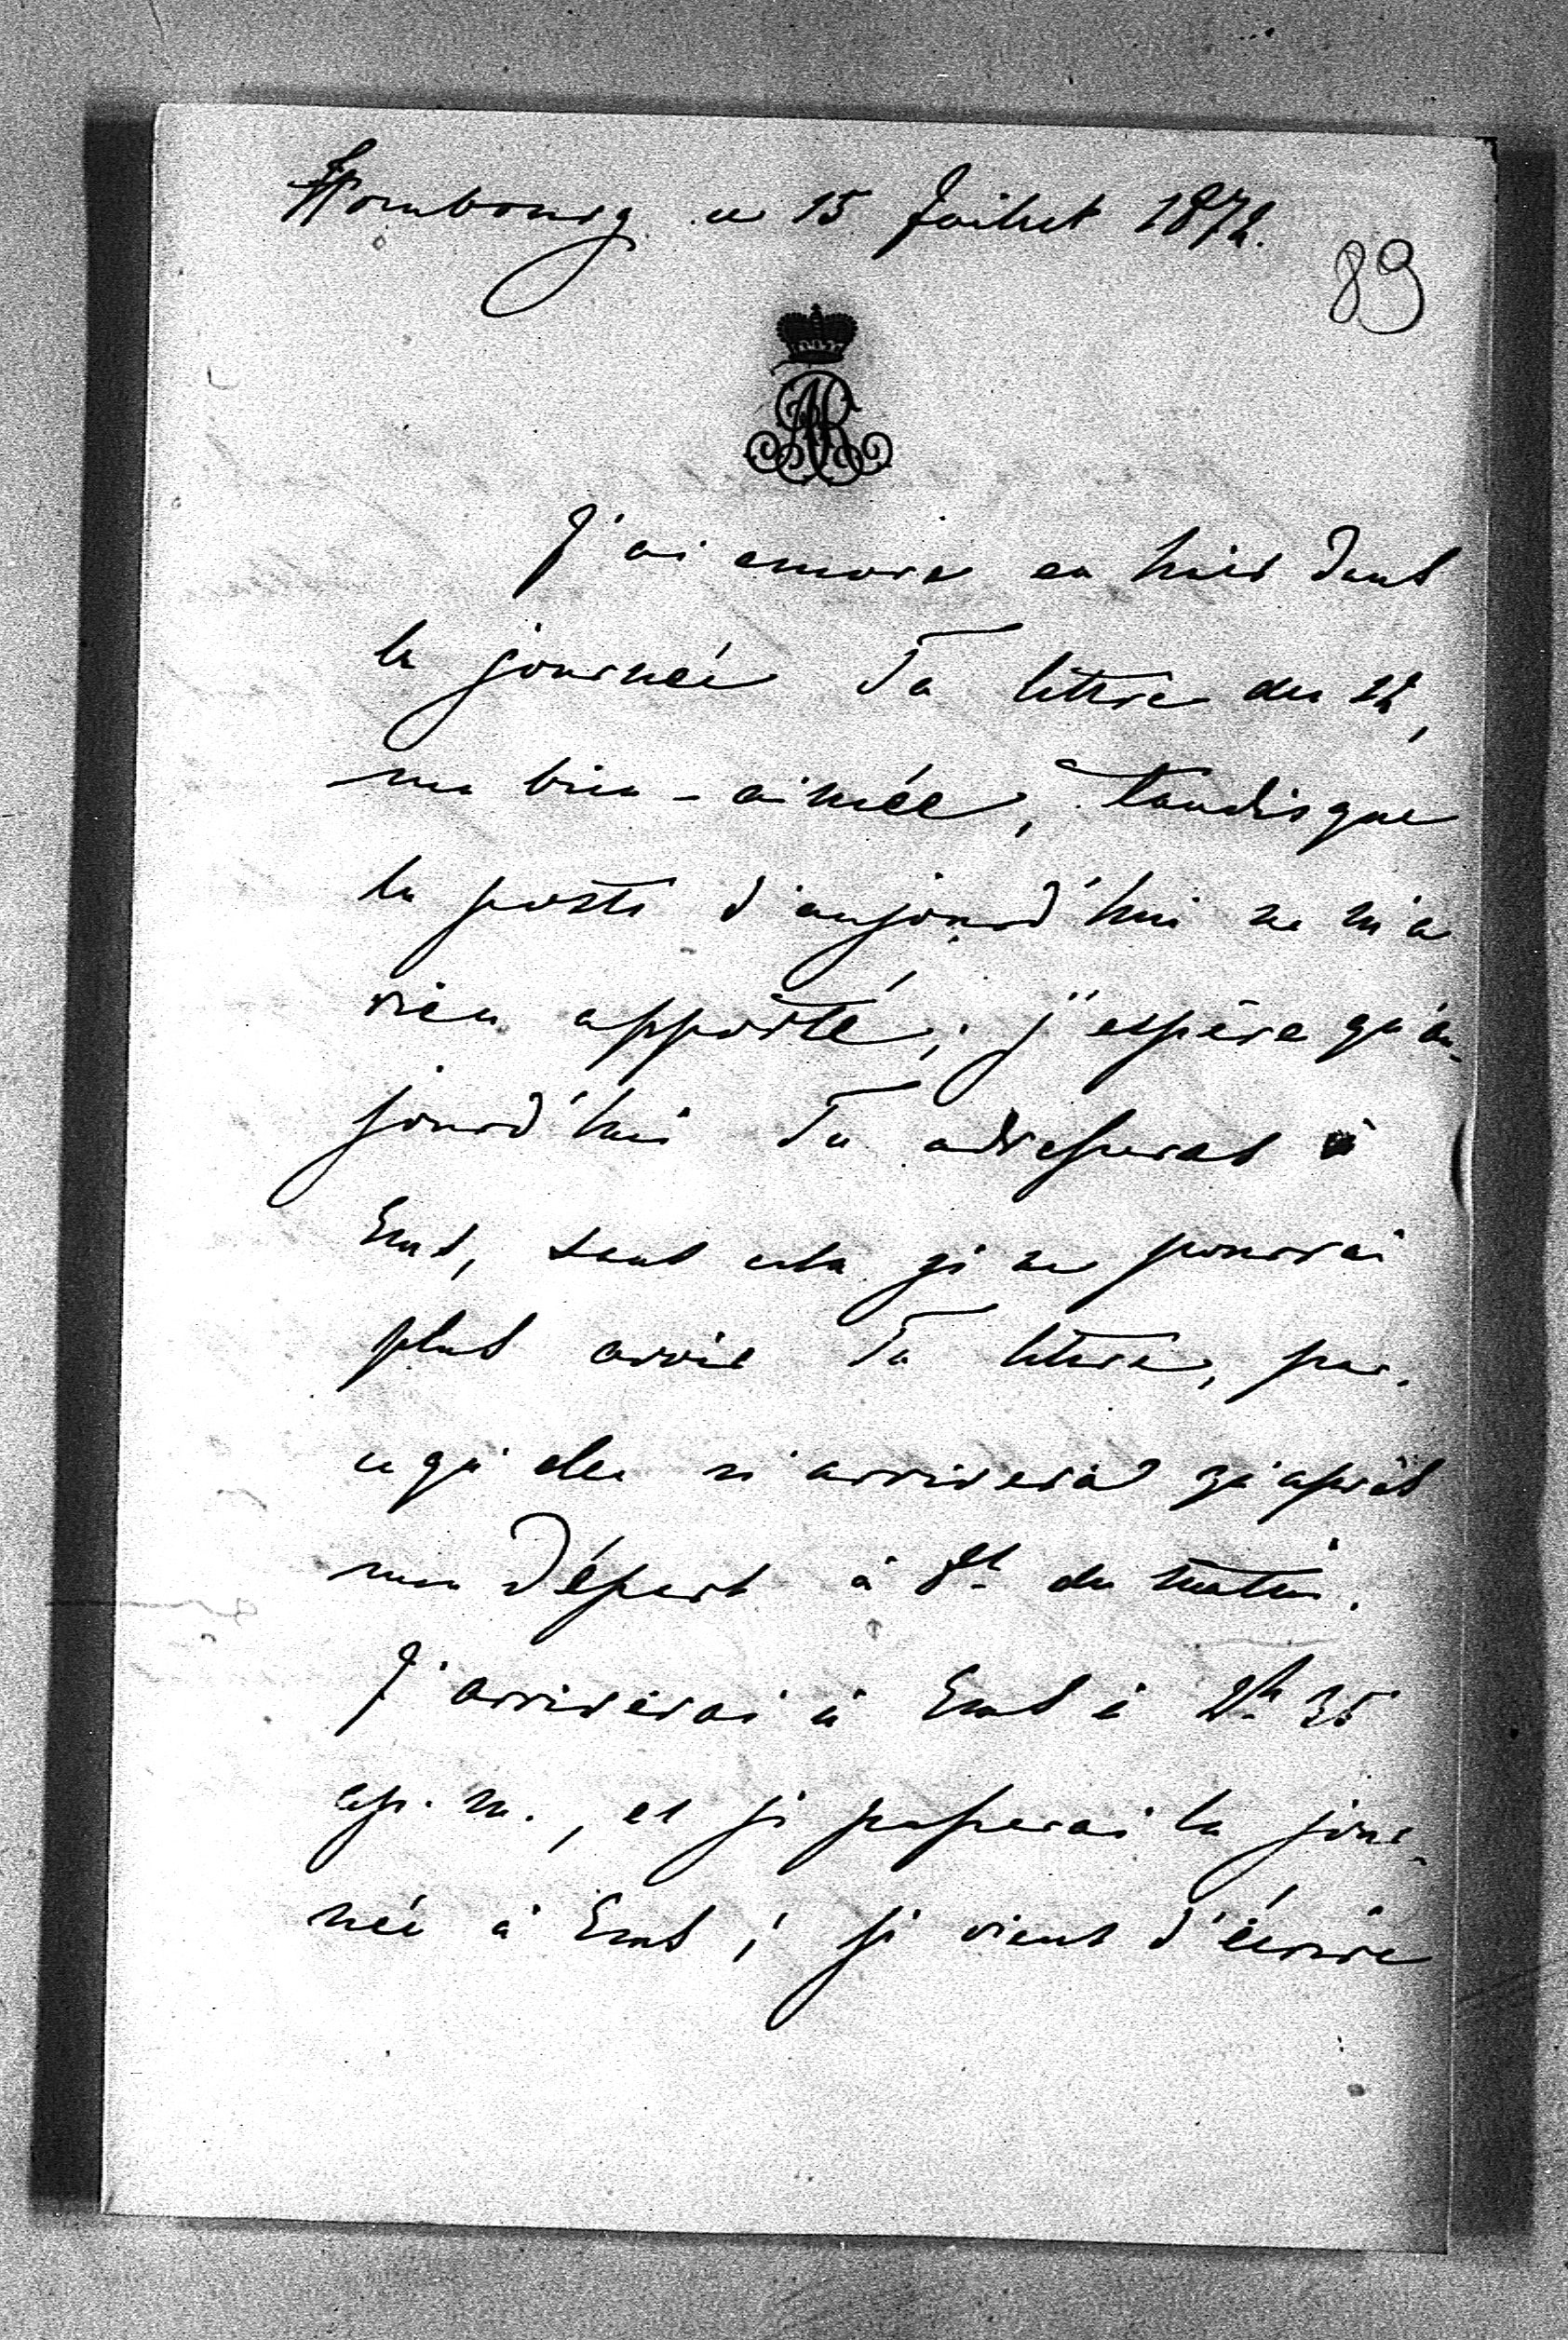 Hombourg ce 15 Juillet 1872.
89
AR
J'ai encore eu hier dans
la journée Ta lettre du 12,
ma bien-aimée, tandisque
la poste d'aujourd'hui ne m'a
rien apporté; j'espère qu'au-
jourd'hui Tu adresseras à
Ems, sans cela je ne pourrai
plus avoir Ta lettre, par-
ce qu'elle n'arrivera qu'après
mon départ à 8h du matin.
J'arriverai à Ems à 2h 35
ap. m., et je passerai la jour-
née à Ems; je viens d'écrire